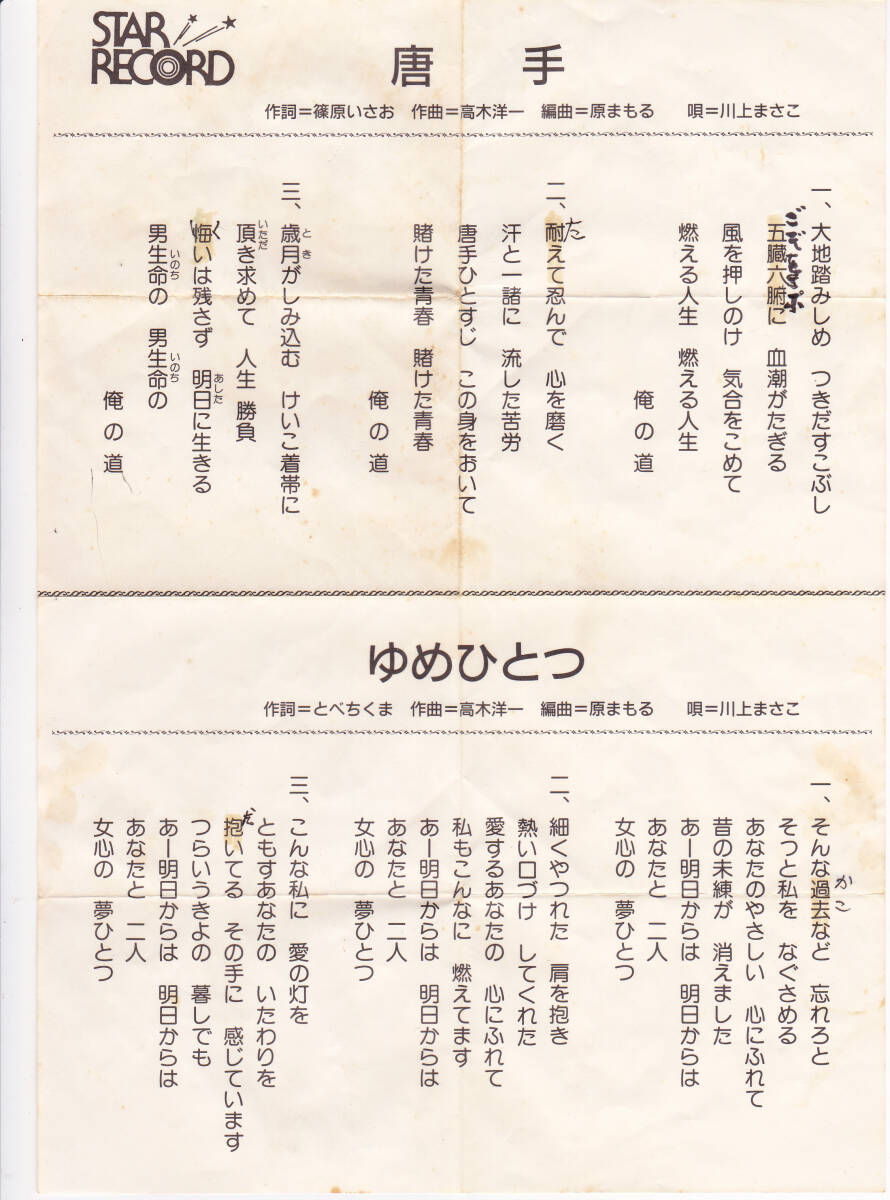 STAR
RECORD
唐手
作詞=篠原いさお 作曲=高木洋一 編曲=原まもる 唄=川上まさこ
一、大地踏みしめ つきだすこぶし
五臓六腑に 血潮がたぎる
ごぞろっぷ
風を押しのけ 気合をこめて
燃える人生 燃える人生
俺の道
二、耐えて忍んで 心を磨く
た
汗と一諸に 流した苦労
唐手ひとすじ この身をおいて
賭けた青春 賭けた青春
俺の道
三、歳月がしみ込む けいこ着帯に
とき
頂き求めて 人生 勝負
いただ
悔いは残さず 明日に生きる
く
あした
男生命の 男生命の
いのち
いのち
俺の道
ゆめひとつ
作詞=とべちくま 作曲=高木洋一 編曲=原まもる 唄=川上まさこ
一、そんな過去など 忘れろと
かこ
そっと私を なぐさめる
あなたのやさしい 心にふれて
昔の未練が 消えました
あー明日からは 明日からは
あなたと 二人
女心の 夢ひとつ
二、細くやつれた 肩を抱き
熱い口づけ してくれた
愛するあなたの 心にふれて
私もこんなに 燃えてます
あー明日からは 明日からは
あなたと 二人
女心の 夢ひとつ
三、こんな私に 愛の灯を
ともすあなたの いたわりを
抱いてる その手に 感じています
だ
つらいうきよの 暮しでも
あー明日からは 明日からは
あなたと 二人
女心の 夢ひとつ